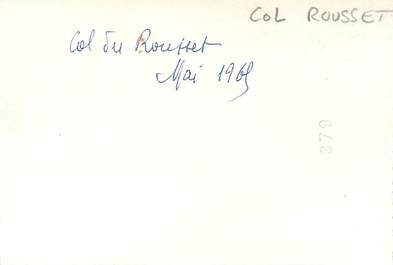 COL ROUSSET
Col du Rousset
Mai 1965
379